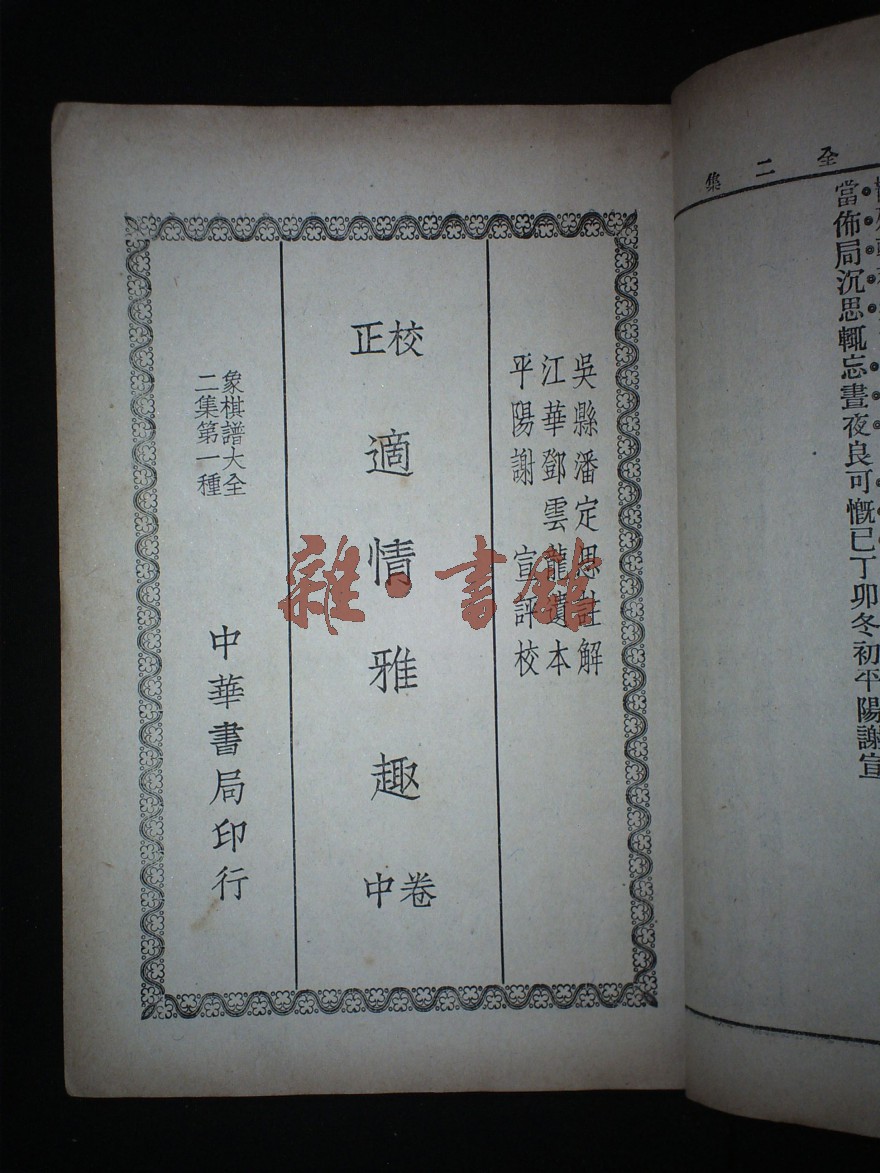 全二集
當佈局沉思輒忘晝夜良可慨已丁卯冬初平陽謝宣
吳縣潘定思註解
江華鄧雲龍遺本
平陽謝宣評校
校正
適情雅趣
卷中
象棋譜大全
二集第一種
中華書局印行
雜·書館